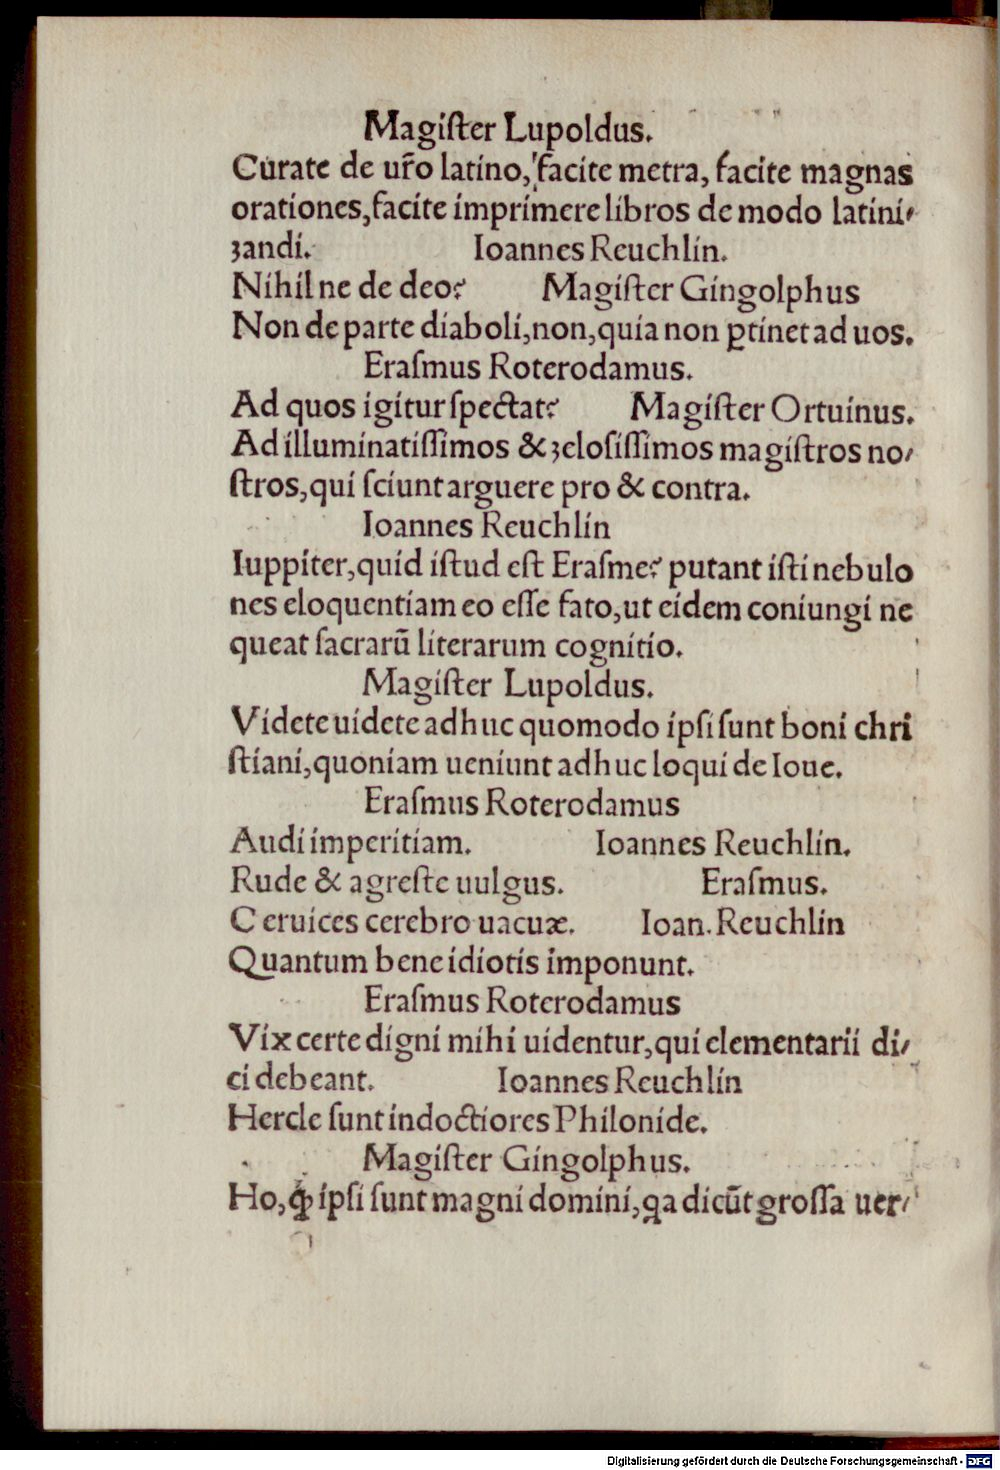 Magiſter Lupoldus.
Curate de ur̃o latino, facite metra, facite magnas
orationes, facite imprimere libros de modo latini⸗
zandi. Ioannes Reuchlin.
Nihil ne de deo? Magiſter Gingolphus
Non de parte diaboli, non, quia non ꝑtinet ad uos.
Eraſmus Roterodamus.
Ad quos igitur ſpectat? Magiſter Ortuinus.
Ad illuminatiſſimos & zeloſiſſimos magiſtros no⸗
ſtros, qui ſciunt arguere pro & contra.
Ioannes Reuchlin
Iuppiter, quid iſtud eſt Eraſme? putant iſti nebulo
nes eloquentiam eo eſſe fato, ut eidem coniungi ne
queat ſacrarũ literarum cognitio.
Magiſter Lupoldus.
Videte uidete adhuc quomodo ipſi ſunt boni chri
ſtiani, quoniam ueniunt adhuc loqui de Ioue.
Eraſmus Roterodamus
Audi imperitiam. Ioannes Reuchlin.
Rude & agreſte uulgus. Eraſmus.
Ceruices cerebro uacuæ. Ioan. Reuchlin
Quantum bene idiotis imponunt.
Eraſmus Roterodamus
Vix certe digni mihi uidentur, qui elementarii di⸗
ci debeant. Ioannes Reuchlin
Hercle ſunt indoctiores Philonide.
Magiſter Gingolphus.
Ho, ꝙ ipſi ſunt magni domini, qa dicũt groſſa uer⸗
Digitalisierung gefördert durch die Deutsche Forschungsgemeinschaft - DFG